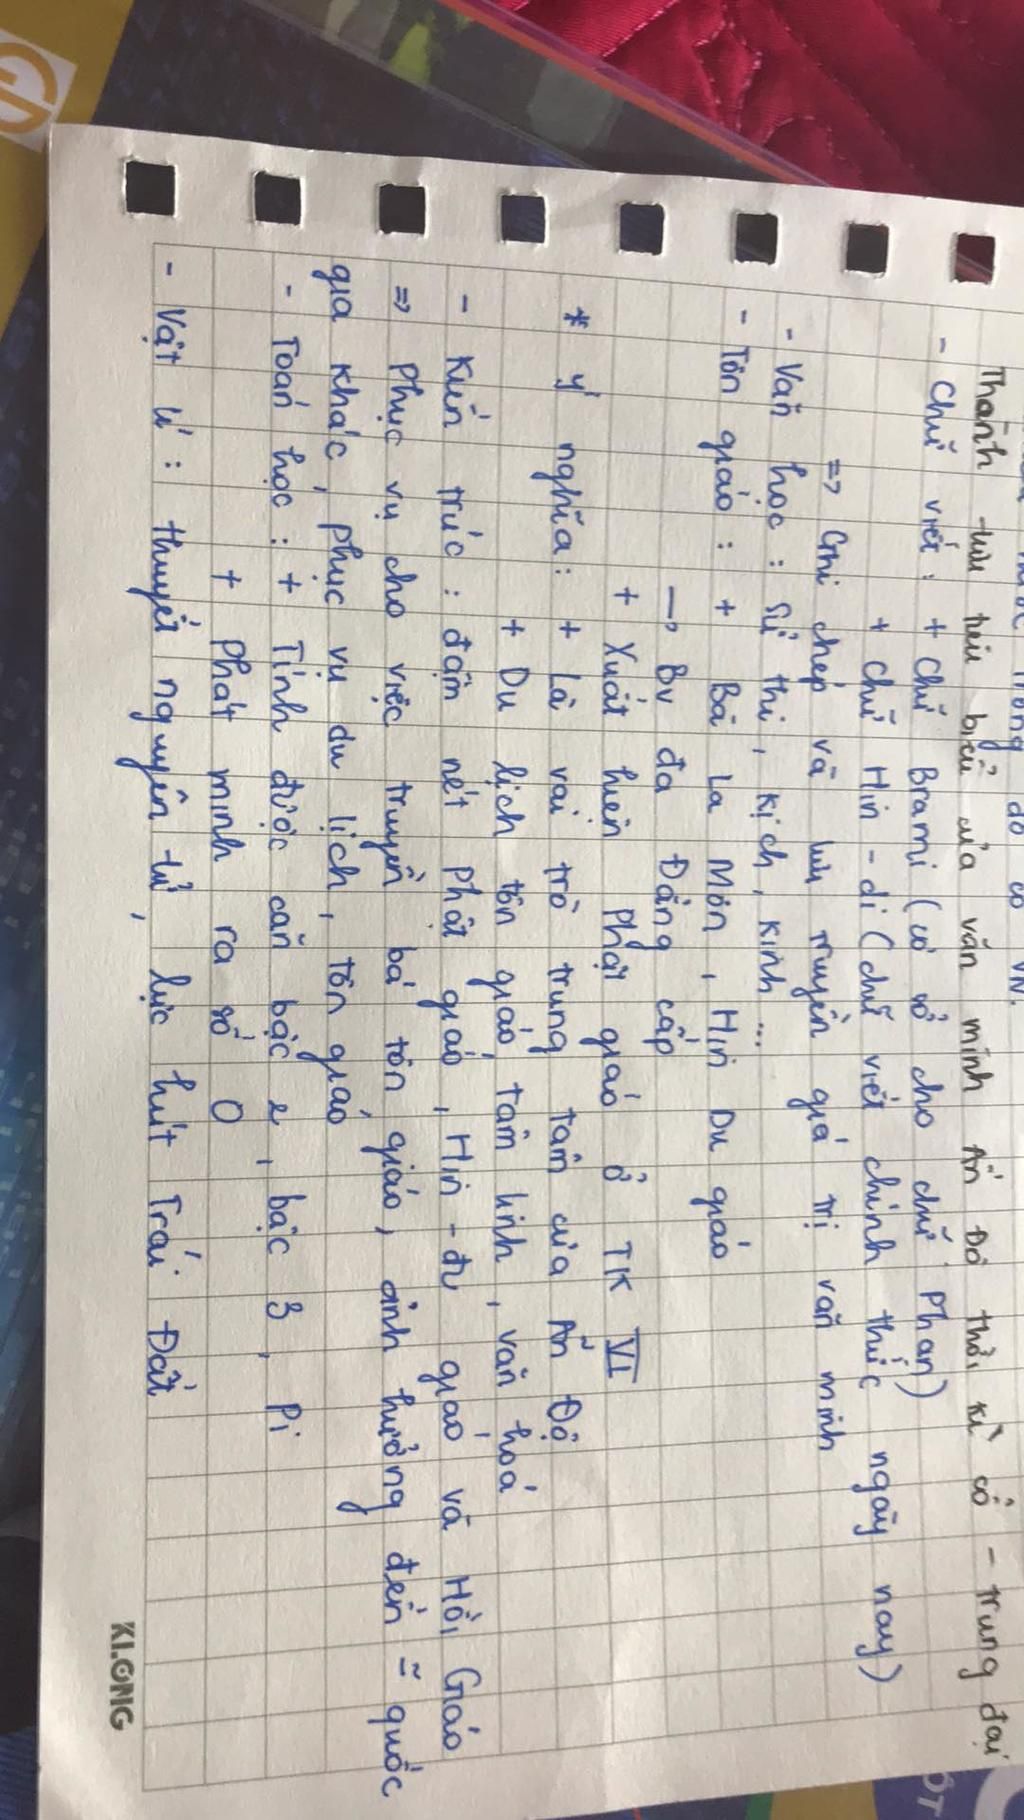 Thành tựu tiêu biểu của văn minh Ấn Độ thời kì cổ - trung đại
- Chữ viết: + Chữ Brami (cơ sở cho chữ Phạn)
+ Chữ Hin - di (chữ viết chính thức ngày nay)
=> Ghi chép và lưu truyền giá trị văn minh
- Văn học: Sử thi, kịch, kinh...
- Tôn giáo: + Bà La Môn, Hin Du giáo
→ Bv đa Đẳng cấp
+ Xuất hiện Phật giáo ở TK VI
* Ý nghĩa: + Là vai trò trung tâm của Ấn Độ
+ Du lịch tôn giáo, tâm linh, văn hoá
- Kiến trúc: đậm nét Phật giáo, Hin - đu giáo và Hồi Giáo
=> Phục vụ cho việc truyền bá tôn giáo, ảnh hưởng đến ~ quốc
gia khác, phục vụ du lịch, tôn giáo
- Toán học: + Tính được căn bậc 2, bậc 3, Pi
+ Phát minh ra số 0
- Vật lí: thuyết nguyên tử, lực hút Trái Đất
KLONG